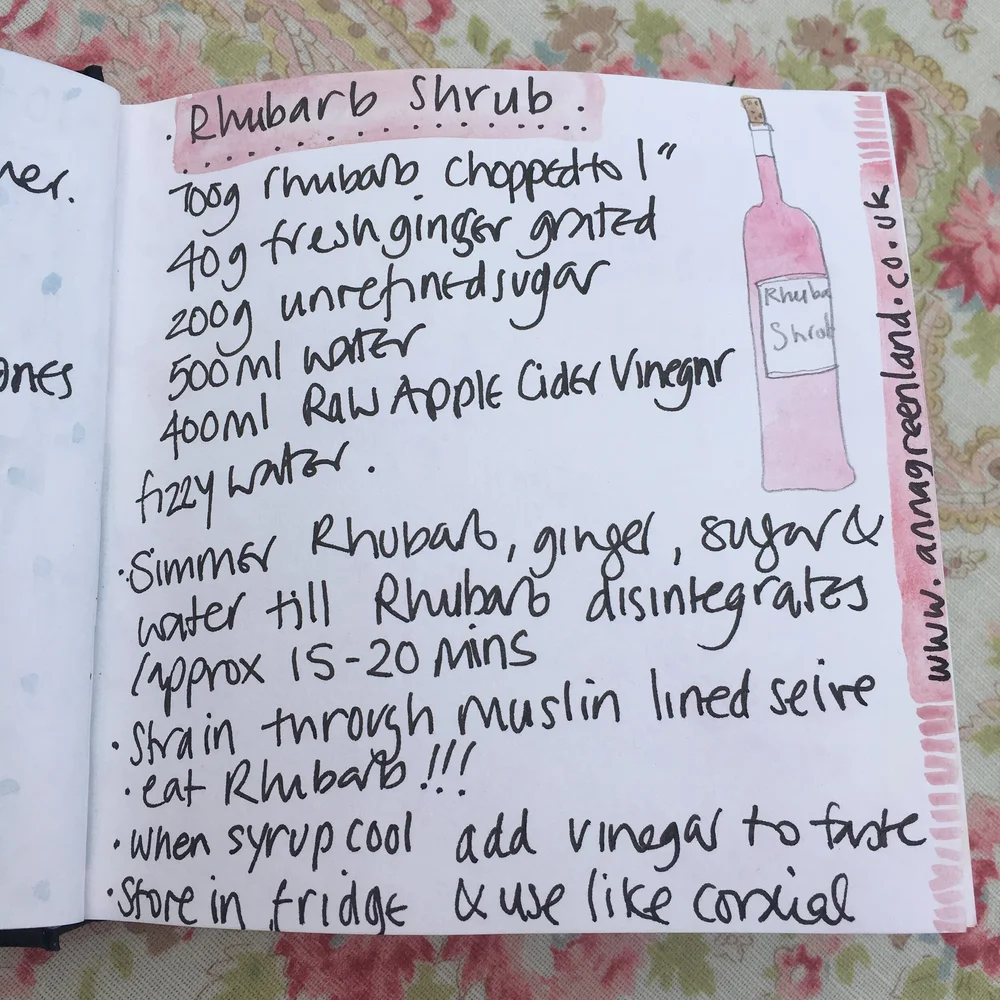 ner.
ones
. Rhubarb Shrub .
700g rhubarb chopped to 1"
40g fresh ginger grated
200g unrefined sugar
500ml water
400ml Raw Apple Cider Vinegar
fizzy water .
Rhuba
Shrub
·Simmer Rhubarb, ginger, sugar &
water till Rhubarb disintegrates
/approx 15-20 mins
·Strain through muslin lined seive
·eat Rhubarb!!!
·when syrup cool add vinegar to taste
·Store in fridge & use like cordial
www.annagreenland.co.uk